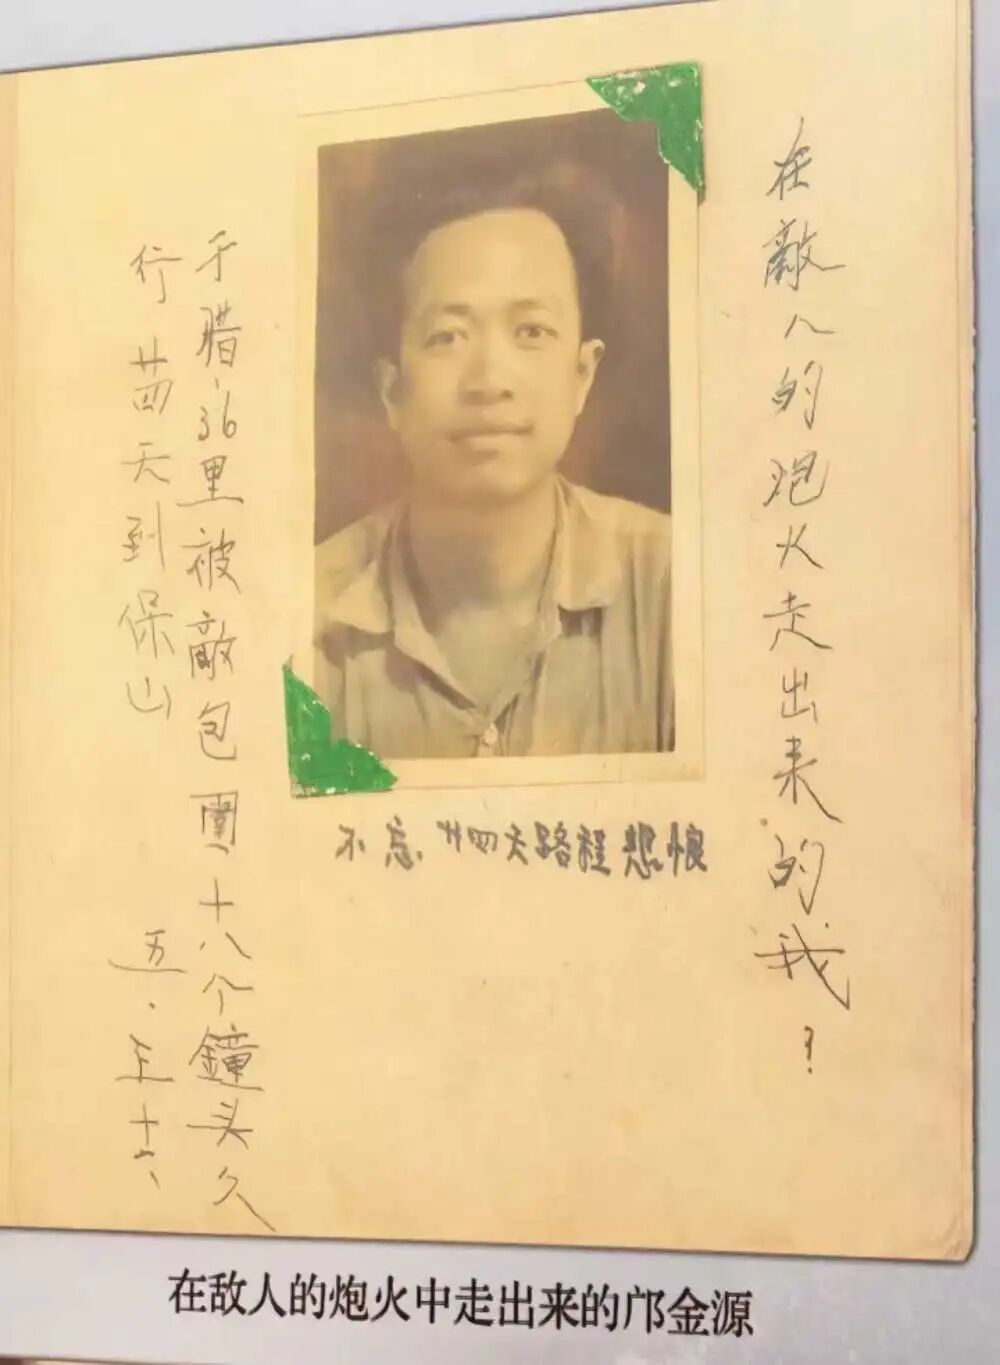 在敵人的炮火走出来的我?
不忘、廿四天路程悲恨
于腊·36里被敵包圍、十八个鐘头久
行廿四天到保山
五·十六、
在敌人的炮火中走出来的邝金源